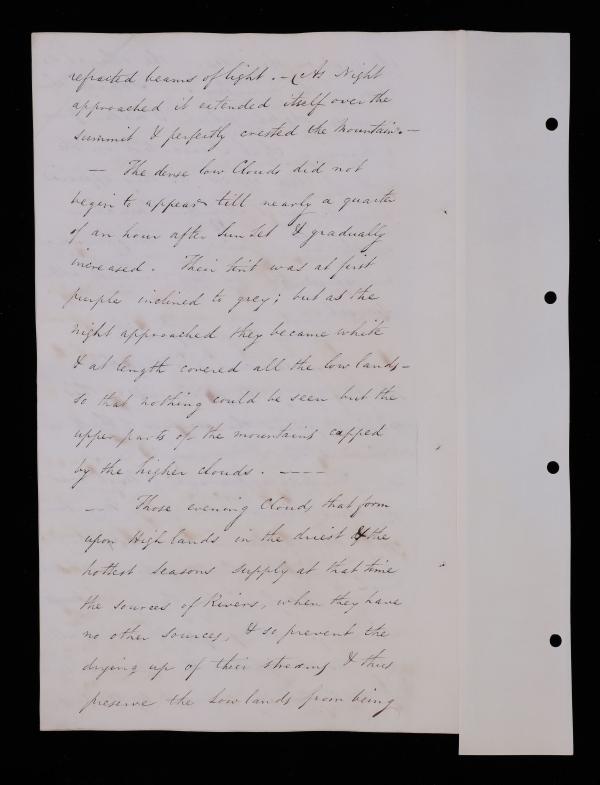 refracted beams of light. – (As Night
approached it extended itself over the
summit & perfectly crested the Mountain. –
– The dense low Clouds did not
begin to appear till nearly a quarter
of an hour after Sun Set & gradually
increased. Their tint was at first
purple inclined to grey; but as the
night approached they became white
& at length covered all the low lands –
so that nothing could be seen but the
upper parts of the mountains capped
by the higher clouds. – – – –
– Those evening Clouds that form
upon High lands in the driest & the
hottest seasons supply at that time
the sources of Rivers, when they have
no other sources, & so prevent the
drying up of their streams & thus
preserve the Low lands from being